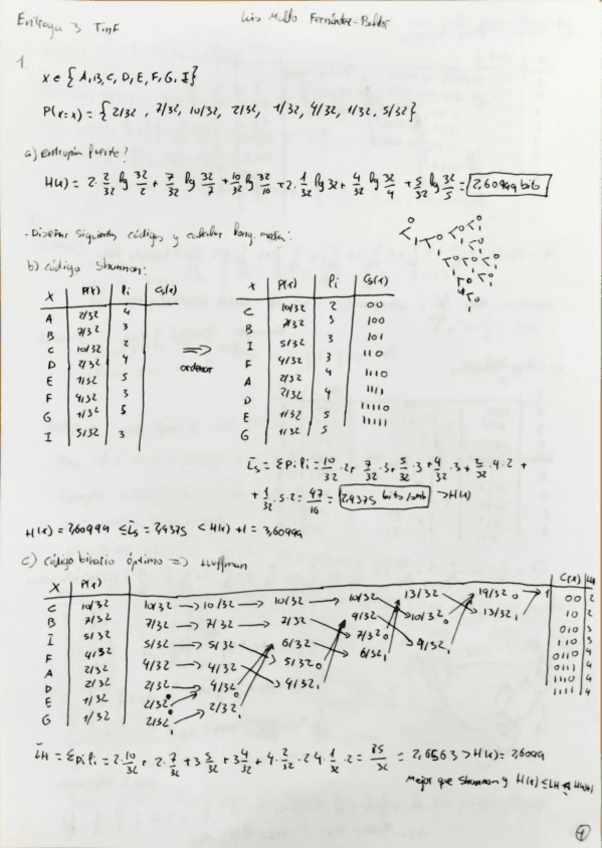 Entrega 3 TinF
Luis
1.
x ∈ {A, B, C, D, E, F, G, I}
P(x=x) = {2/32, 7/32, 10/32, 2/32, 1/32, 4/32, 1/32, 5/32}
a) entropía fuente?
H(x) = 2·2/32 lg 32/2 + 7/32 lg 32/7 + 10/32 lg 32/10 + 2·1/32 lg 32 + 4/32 lg 32/4 + 5/32 lg 32/5 = 2,60994 bits
·Diseñar siguientes códigos y calcular long. media:
b) código Shannon:
X P(x) li Cs(x)
A 2/32 4
B 7/32 3
C 10/32 2
D 2/32 4
E 1/32 5
F 4/32 3
G 1/32 5
I 5/32 3
⇒ ordenar
X P(x) li Cs(x)
C 10/32 2 00
B 7/32 3 100
I 5/32 3 101
F 4/32 3 110
A 2/32 4 1110
D 2/32 4 1111
E 1/32 5 11110
G 1/32 5 11111
L̄s = Σpili = 10/32·2 + 7/32·3 + 5/32·3 + 4/32·3 + 2/32·4·2 +
+ 1/32·5·2 = 47/16 = 2,9375 bits/símb > H(x)
H(x) = 2,60994 ≤ L̄s = 2,9375 < H(x) + 1 = 3,60994
c) código binario óptimo ⇒ Huffman
X P(x) C(x) LH
C 10/32 10/32 → 10/32 → 10/32 → 10/32 13/32 19/32 0 1 00 2
B 7/32 7/32 → 7/32 → 7/32 9/32 10/32 0 13/32 1 10 2
I 5/32 5/32 → 5/32 6/32 7/32 0 9/32 1 010 3
F 4/32 4/32 → 4/32 5/32 0 6/32 1 110 3
A 2/32 2/32 4/32 0 4/32 1 0110 4
D 2/32 2/32 0 2/32 1 0111 4
E 1/32 2/32 1 1110 4
G 1/32 1111 4
L̄H = Σpili = 2·10/32 + 2·7/32 + 3·5/32 + 3·4/32 + 4·2/32·2 4·1/32·2 = 85/32 = 2,6563 > H(x) = 2,6099
Mejor que Shannon y H(x) ≤ LH < H(x)+1
1